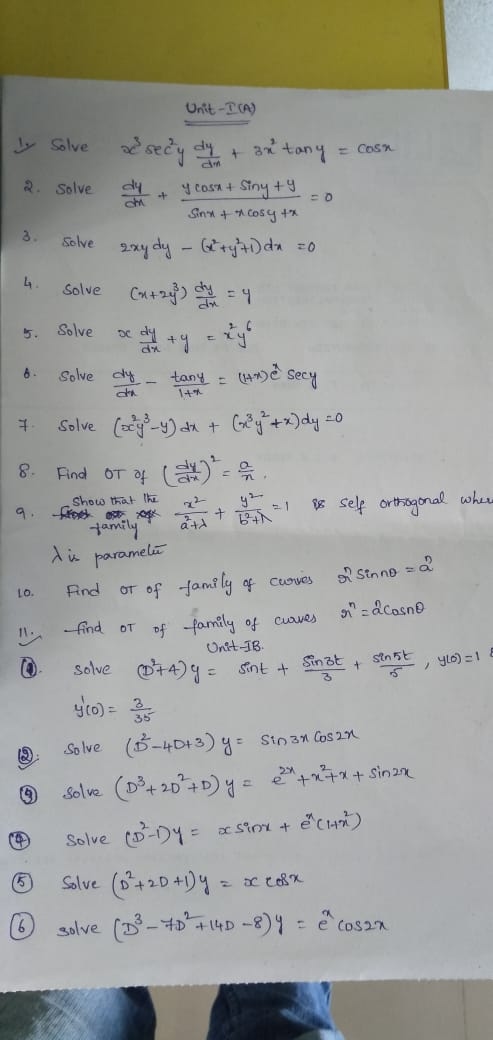 Unit - I(A)
1. Solve x³ sec²y dy/dx + 3x² tan y = cosx
2. Solve dy/dx + (y cosx + siny + y)/(sinx + x cosy + x) = 0
3. Solve 2xy dy - (x²+y²+1) dx = 0
4. Solve (x+2y³) dy/dx = y
5. Solve x dy/dx + y = x²y⁶
6. Solve dy/dx - tany/(1+x) = (1+x)eˣ secy
7. Solve (x²y³-y) dx + (x³y²+x) dy = 0
8. Find OT of (dy/dx)² = a/x.
9. Show that the family x²/(a²+λ) + y²/(b²+λ) = 1 is self orthogonal where
λ is parameter
10. Find OT of family of curves rⁿ sin nθ = aⁿ
11. find OT of family of curves rⁿ = aⁿ cosnθ
Unit-IB.
1. solve (D²+4)y = sint + sin3t/3 + sin5t/5, y(0)=1 &
y'(0) = 3/35
2. Solve (D²-4D+3) y = sin3x cos2x
Solve (D³+2D²+D) y = e²ˣ+x²+x+sin2x
Solve (D²-1)y = x sinx + eˣ(1+x²)
5 Solve (D²+2D+1) y = x cosx
6 solve (D³-7D²+14D-8) y = eˣ cos2x